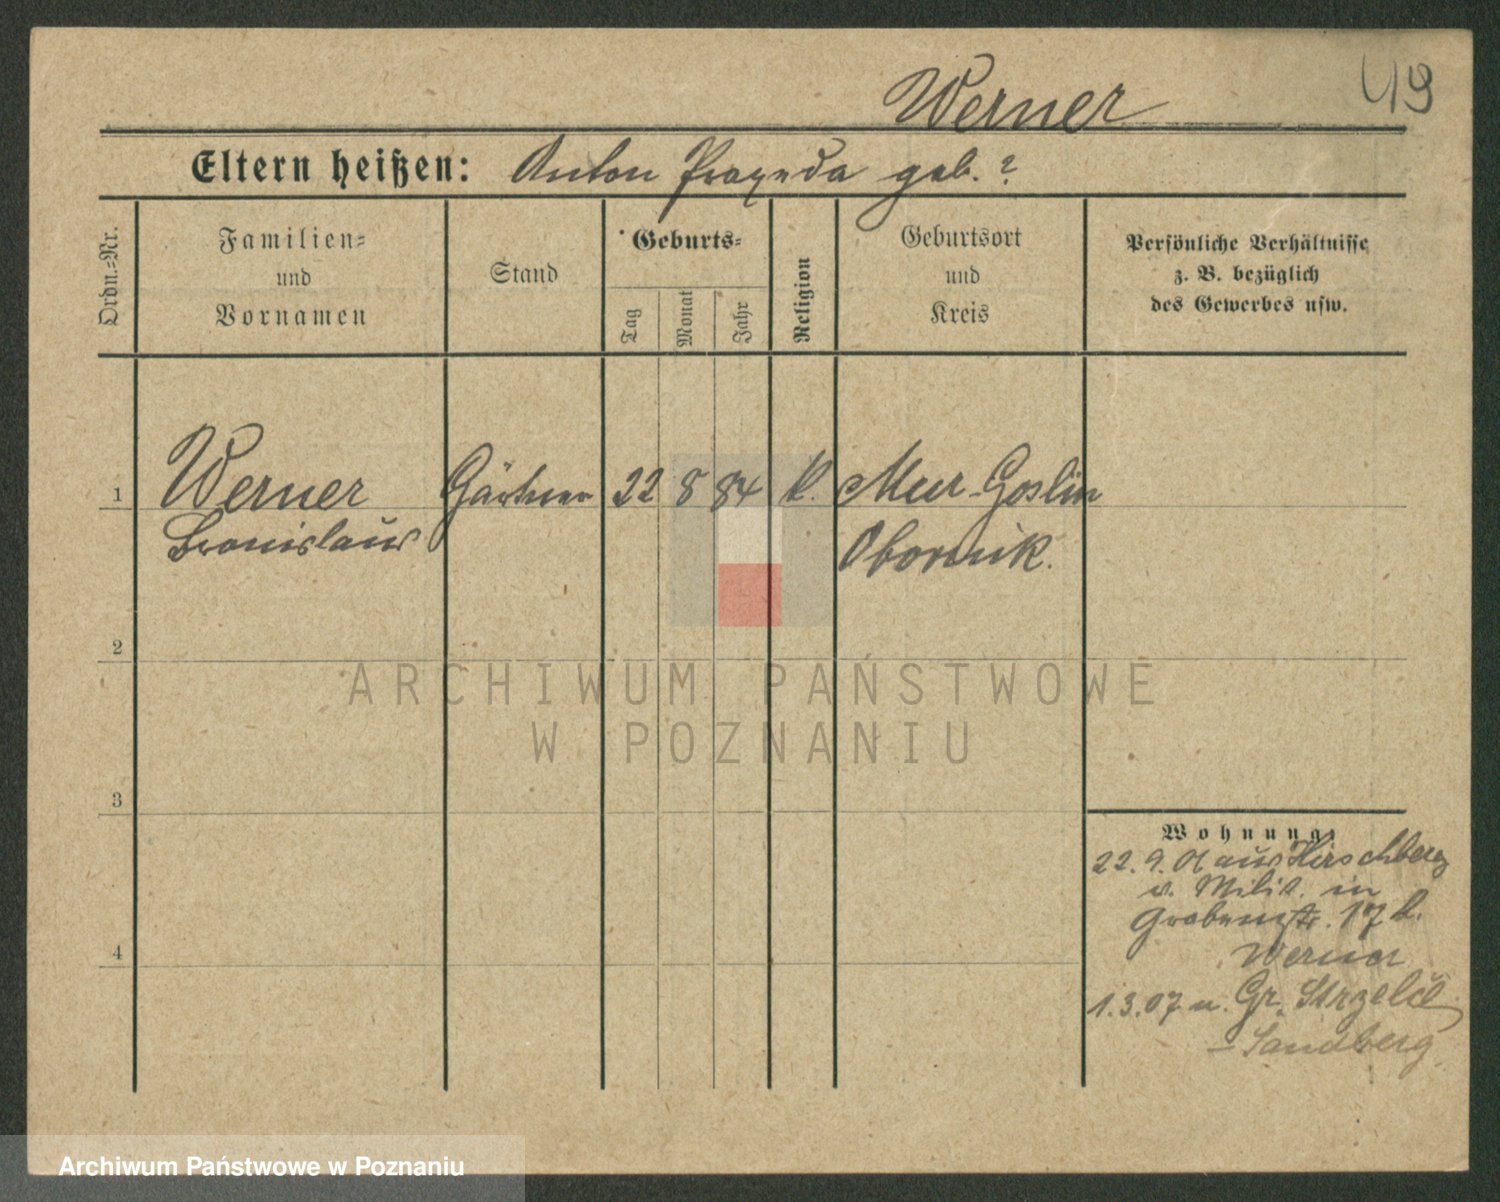 49
Werner
Eltern heißen: Anton Praxeda geb. ?
Ordn.-Nr.
Familien-
und
Vornamen
Stand
Geburts-
Tag
Monat
Jahr
Religion
Geburtsort
und
Kreis
Persönliche Verhältnisse
z. B. bezüglich
des Gewerbes usw.
1 Werner Gärtner 22 8 84 k. Mur-Goslin
Bronislaus Obornik.
2
3
4
Wohnung:
22. 9. 06 aus Hirschberg
v. Milit. in
Grabenstr. 17 b.
Werner
1. 3. 07 n. Gr. Strzelce
- Sandberg
ARCHIWUM PAŃSTWOWE
W POZNANIU
Archiwum Państwowe w Poznaniu